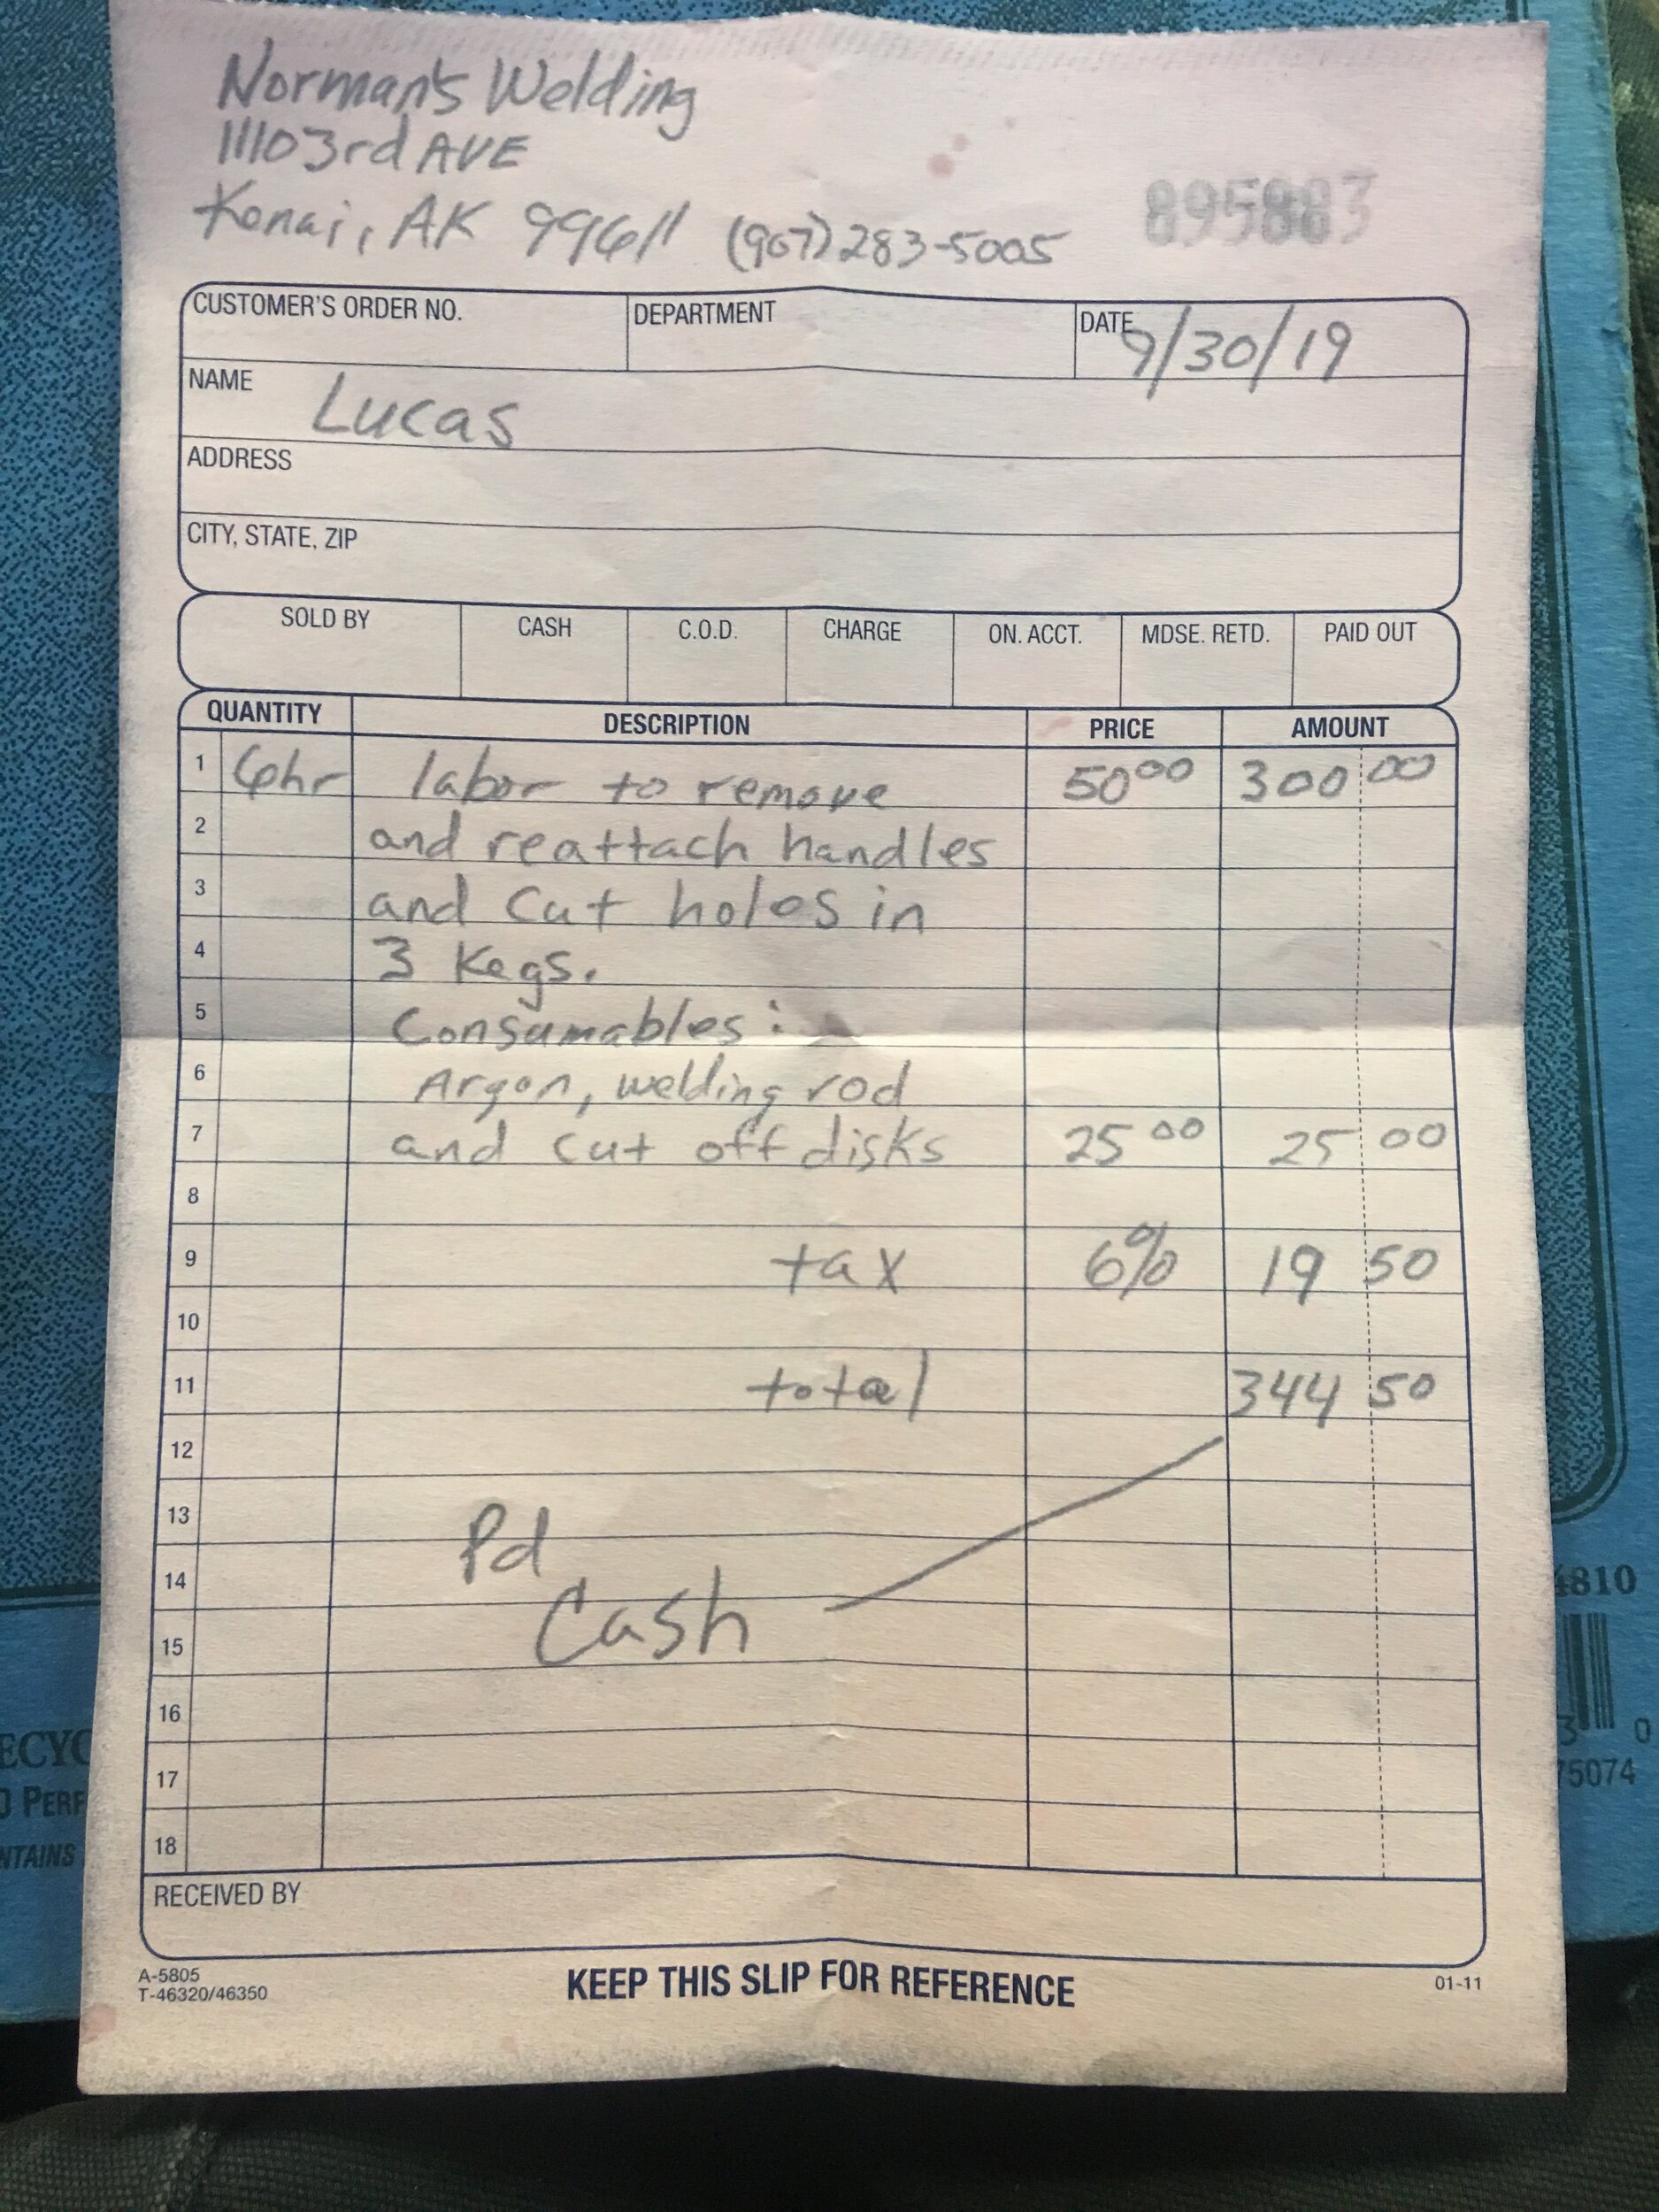 Norman's Welding
11103rd AVE
Kenai, AK 99611 (907) 283-5005
CUSTOMER'S ORDER NO. DEPARTMENT DATE 9/30/19
NAME Lucas
ADDRESS
CITY, STATE, ZIP
SOLD BY CASH C.O.D. CHARGE ON. ACCT. MDSE. RETD. PAID OUT
QUANTITY DESCRIPTION PRICE AMOUNT
1 6hr labor to remove 50 00 300 00
2 and reattach handles
3 and cut holes in
4 3 Kegs.
5 Consumables:
6 Argon, welding rod
7 and cut off disks 25 00 25 00
8
9 tax 6% 19 50
10
11 total 344 50
12
13 Pd
14
15 Cash
16
17
18
RECEIVED BY
A-5805
T-46320/46350
KEEP THIS SLIP FOR REFERENCE
01-11
4810
0
75074